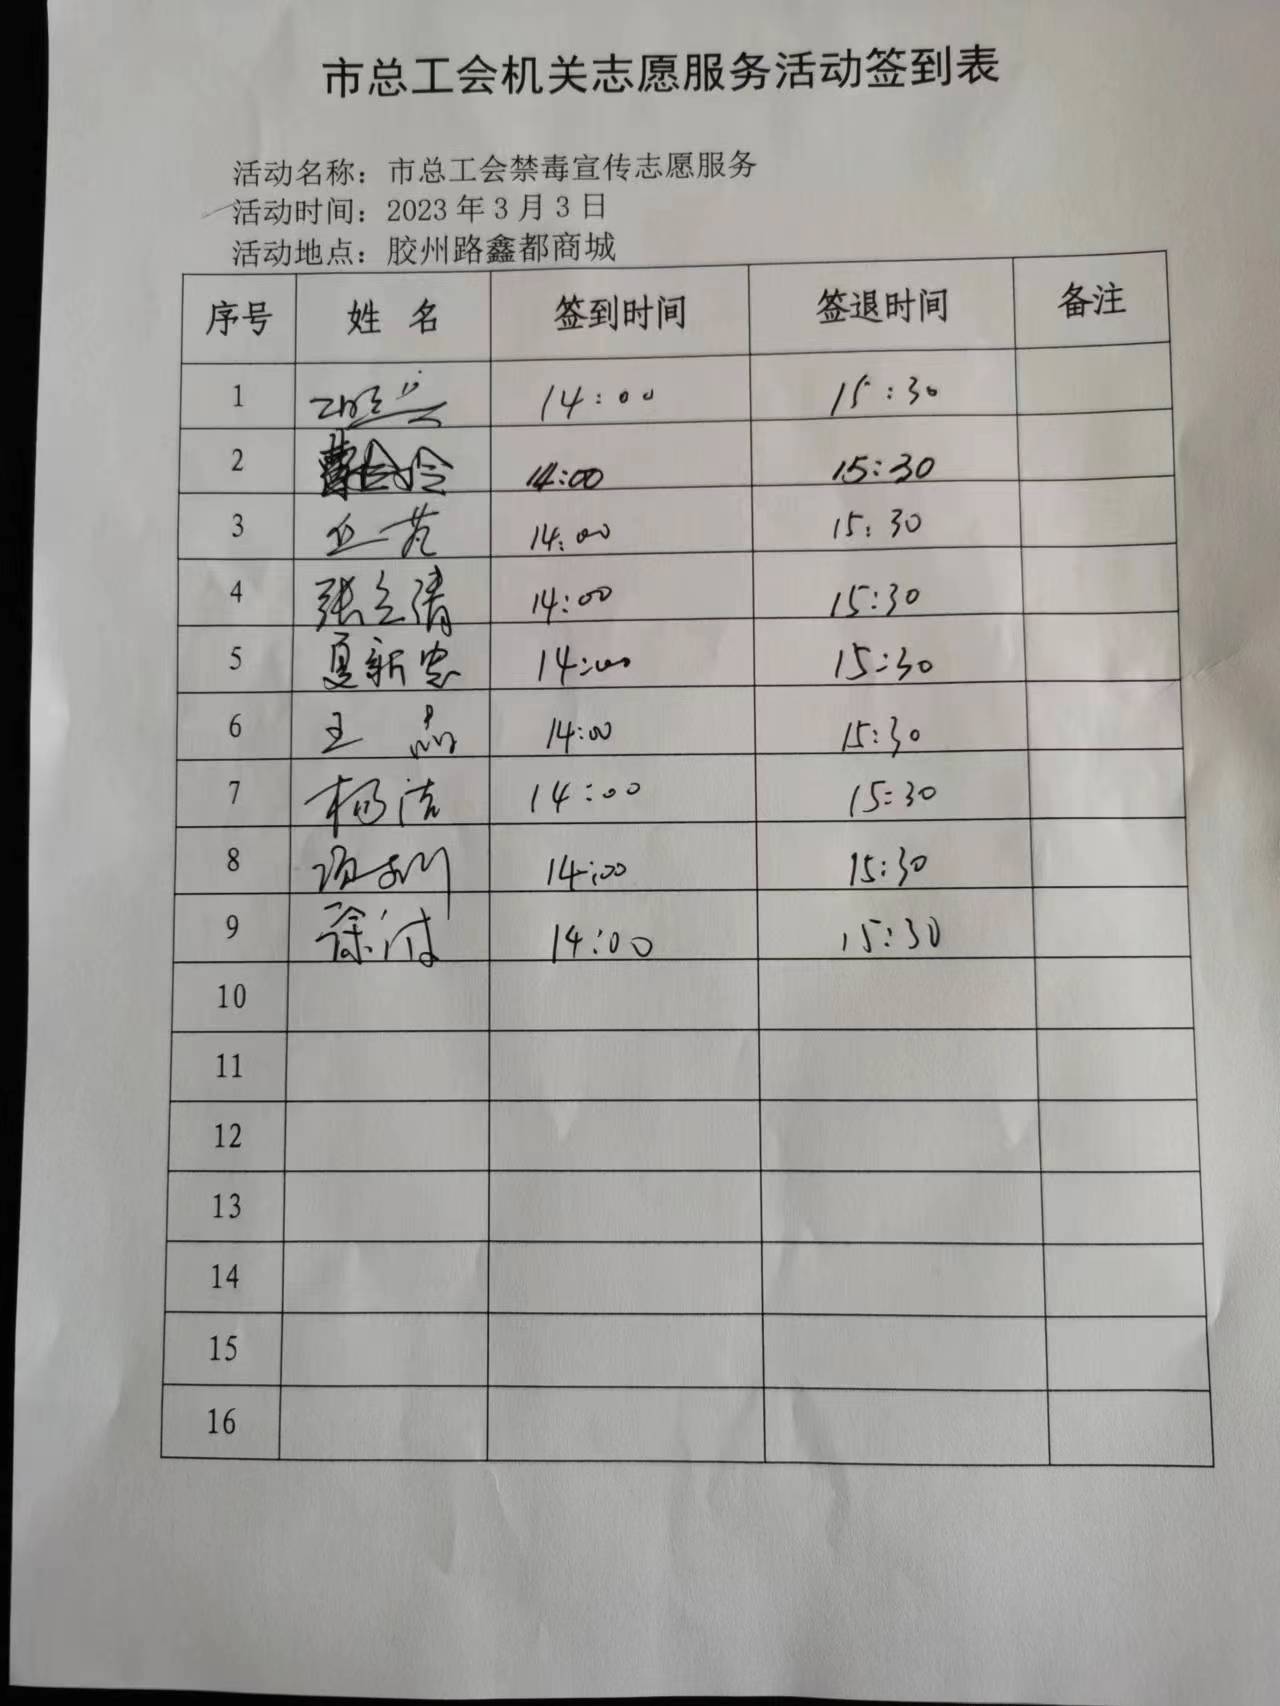 市总工会机关志愿服务活动签到表
活动名称：市总工会禁毒宣传志愿服务
活动时间：2023年3月3日
活动地点：胶州路鑫都商城
序号 姓名 签到时间 签退时间 备注
1 14:00 15:30
2 14:00 15:30
3 14:00 15:30
4 张立清 14:00 15:30
5 夏新忠 14:00 15:30
6 王晶 14:00 15:30
7 杨洁 14:00 15:30
8 14:00 15:30
9 徐波 14:00 15:30
10
11
12
13
14
15
16